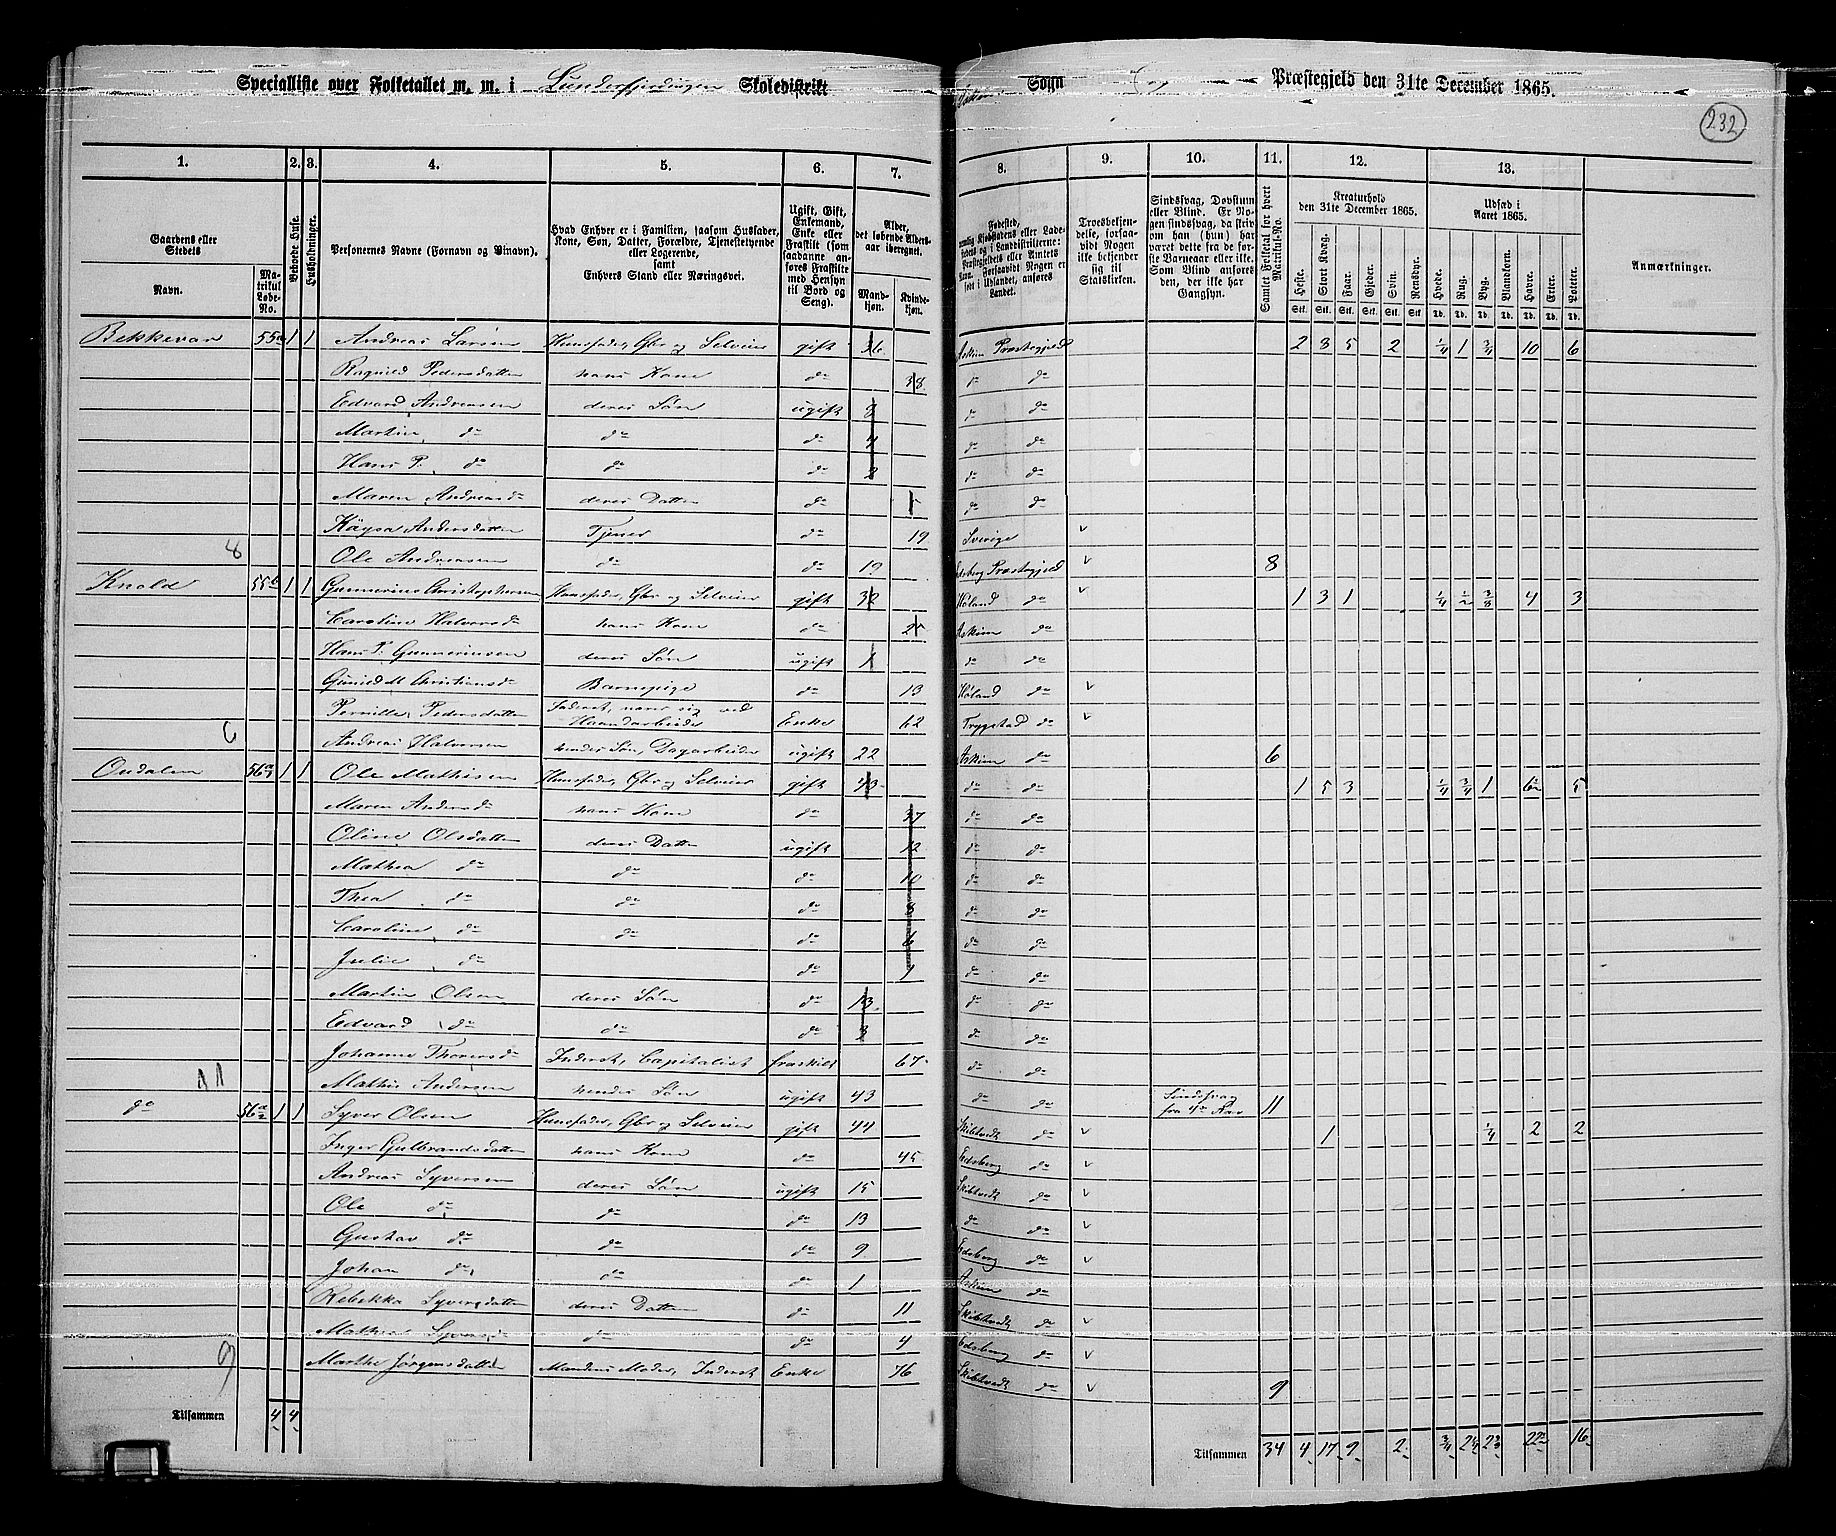 Specialliste over Folketallet m. m. i Lundefjerdingen Skoledistrikt Sogn Præstegjeld den 31te December 1865.
232
1. 2. 3. 4. 5. 6. 7. 8. 9. 10. 11. 12. 13.
Gaardens eller Stedets Navn.
Matrikul Løbe-No.
Beboede Huse.
Husholdninger.
Personernes Navne (Fornavn og Binavn).
Hvad Enhver er i Familien, saasom Husfader, Kone, Søn, Datter, Forældre, Tjenestetyende eller Logerende, samt Enhvers Stand eller Næringsvei.
Ugift, Gift, Enkemand, Enke eller Fraskilt (som saadanne anføres Fraskilte med Hensyn til Bord og Seng).
Alder, det løbende Aldersaar iberegnet.
Mandkjøn. Kvindekjøn.
Troesbekjendelse, forsaavidt Nogen ikke bekjender sig til Statskirken.
Sindssvag, Døvstum eller Blind. Er Nogen sindssvag, da skrives om han (hun) har været dette fra de første Barneaar eller ikke. Som Blind anføres den, der ikke har Gangsyn.
Samlet Folketal for hvert Matrikul-No.
Kreaturhold den 31te December 1865.
Heste. Stort Kvæg. Faar. Gjeder. Svin. Rensdyr.
Udsæd i Aaret 1865.
Hvede. Rug. Byg. Blandkorn. Havre. Erter. Poteter.
Anmærkninger.
Bekkevar 55a 1 1 Andreas Larsen Huusfader, Gbr og Selveier gift 36 Askim Præstegjeld 2 3 5 2 1/4 1 3/4 10 6
Ragnild Pedersdatter hans Kone do 38 do do
Edvard Andreasen deres Søn ugift 8 do do
Martin do do do 4 do do
Hans P. do do do 2 do do
Maren Andreasd deres Datter do 5 do do
Kaysa Andersdatter Tjener do 19 Sverige v
8 Ole Andreasen do do 19 Edsberg Præstegjeld v 8
Knold 55b 1 1 Gunnerius Christophersen Huusfader, Gbr og Selveier gift 32 Høland do v 1 3 1 1/4 1/2 3/8 4 3
Caroline Halvorsd hans Kone do 25 Askim do
Hans P. Gunneriusen deres Søn ugift 1 do do
Gunild M Christiansd Barnepige do 13 Høland do v
Pernille Pedersdatter Inderst, nærer sig ved Haandarbeide Enke 62 Trygstad do v
6 Andreas Halvorsen hendes Søn, Dagarbeider ugift 22 Askim do 6
Ondalen 56a 1 1 Ole Mathisen Huusfader, Gbr og Selveier gift 43 do do 1 5 3 1/4 3/4 1 6 5
Maren Andersd hans Kone do 37 do do
Oline Olsdatter deres Datter ugift 12 do do
Mathea do do do 10 do do
Thea do do do 8 do do
Caroline do do do 6 do do
Julie do do 1 do do
Martin Olsen deres Søn do 13 do do
Edvard do do do 3 do do
Johanne Thoresd Inderst, Capitalist fraskilt 67 do do
11 Mathis Andersen hendes Søn ugift 43 do do Sindssvag fra 4de Aar 11
do 56a 1 1 Syver Olsen Huusfader, Gbr og Selveier gift 44 Skibtvedt do v 1 1/4 2 2
Inger Gulbrandsdatter hans Kone do 45 Edsberg do v
Andreas Syversen deres Søn ugift 15 Skibtvedt do v
Ole do do do 13 do do v
Gustav do do do 9 Edsberg do v
Johan do do do 1 Askim do
Rebekka Syversdatter deres Datter do 11 Skibtvedt do v
Mathea Syversd do do 4 Edsberg do v
9 Marthe Jørgensdatter Mandens Moder, Inderst Enke 76 Skibtvedt do v 9
Tilsammen 4 4
Tilsammen 34 4 17 9 2 3/4 22 16